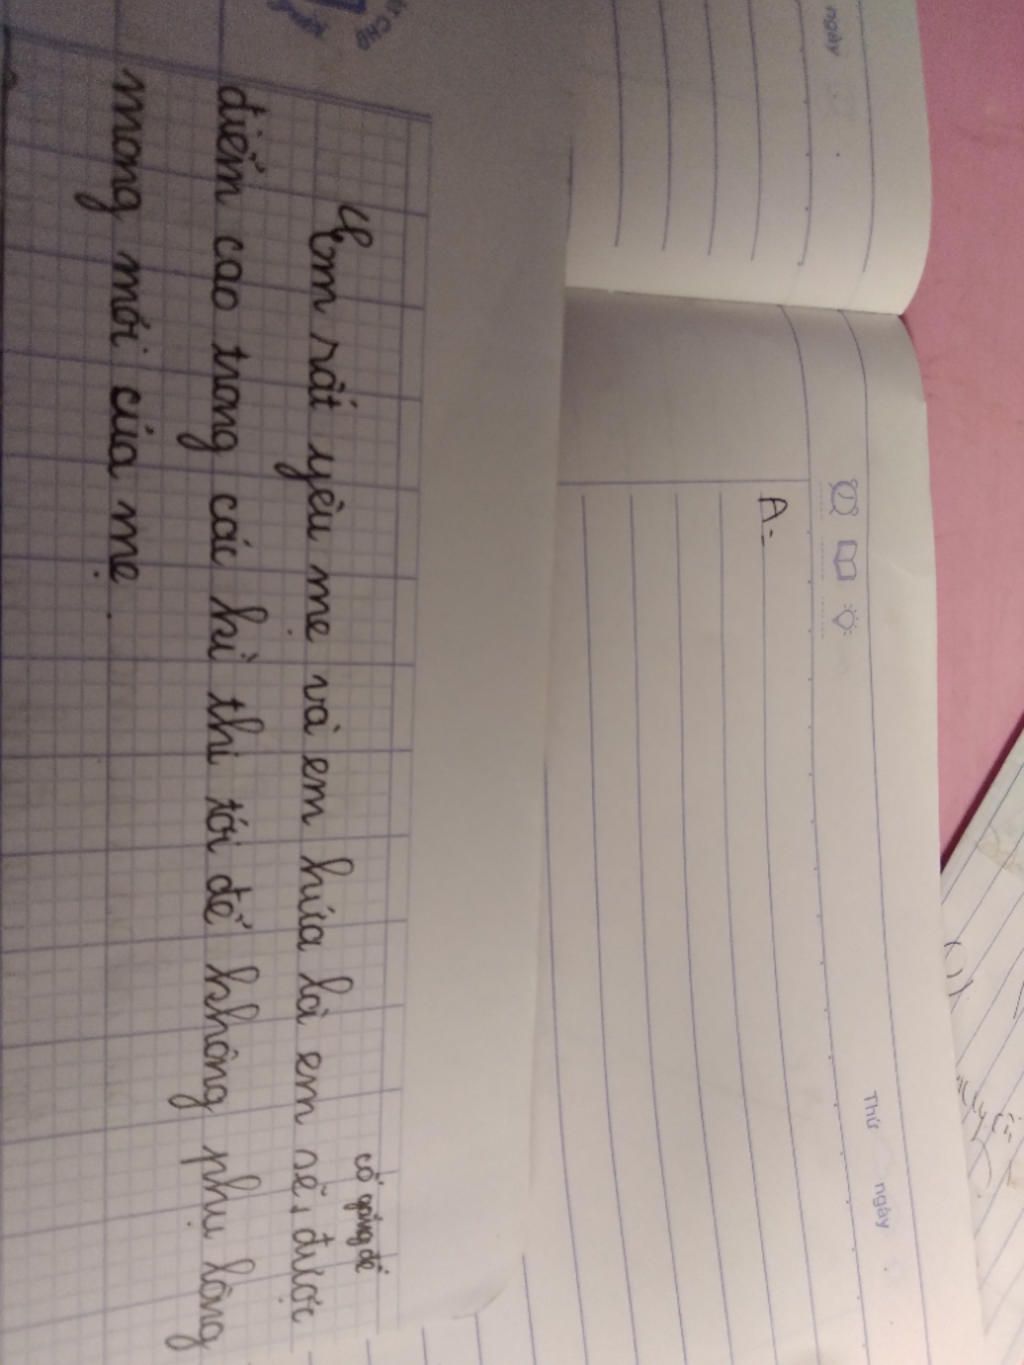 cố gắng để
Em rất yêu mẹ và em hứa là em sẽ, được
điểm cao trong các kì thi tới để không phụ lòng
mong mỏi của mẹ.
A:
Thứ ngày
ngày